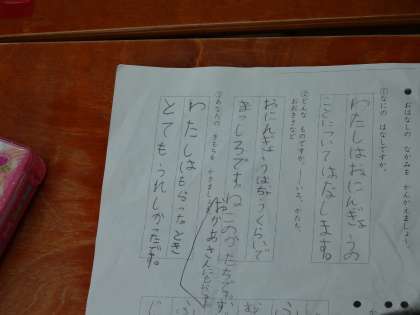 ●おはなしの なかみを かんがえましょう。
①なにの はなしですか。
わたしはおにんぎょうの
ことについてはなします。
②どんな ものですか。(いろ、かたち、
おおきさなど)
おにんぎょうはちゅうくらいで
まっしろです。ねこのかたちです。
③あなたの きもちを かきましょう。
おかあさんに
わたしはもらったとき
とてもうれしかたです。